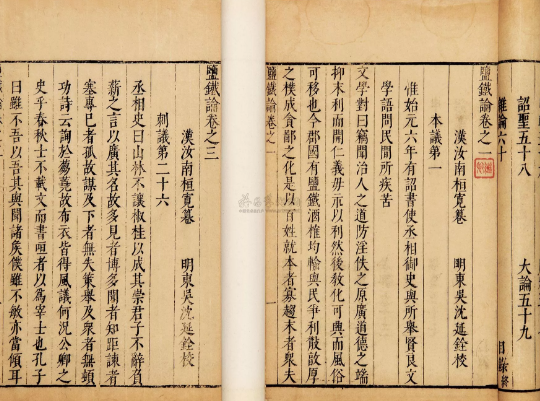 詔聖五十八 大論五十九
雜論六十 目錄終
鹽鐵論卷之一
漢汝南桓寬纂 明東吳沈延銓校
本議第一
惟始元六年有詔書使丞相御史與所舉賢良文
學語問民間所疾苦
文學對曰竊聞治人之道防淫佚之原廣道德之端
抑末利而開仁義毋示以利然後敎化可興而風俗
可移也今郡國有鹽鐵酒榷均輸與民爭利散敦厚
之樸成貪鄙之化是以百姓就本者寡趨末者衆夫
鹽鐵論卷之一
鹽鐵論卷之三
漢汝南桓寬纂 明東吳沈延銓校
刺議第二十六
丞相史曰山林不讓椒桂以成其崇君子不辭負
薪之言以廣其名故多見者博多聞者知距諫者
塞專己者孤故謀及下者無失策舉及衆者無頓
功詩云詢於芻蕘故布衣皆得風議何況公卿之
史乎春秋士不載文而書咺者以爲宰士也孔子
曰雖不吾以吾其與聞諸矦僕雖不敏亦當傾耳